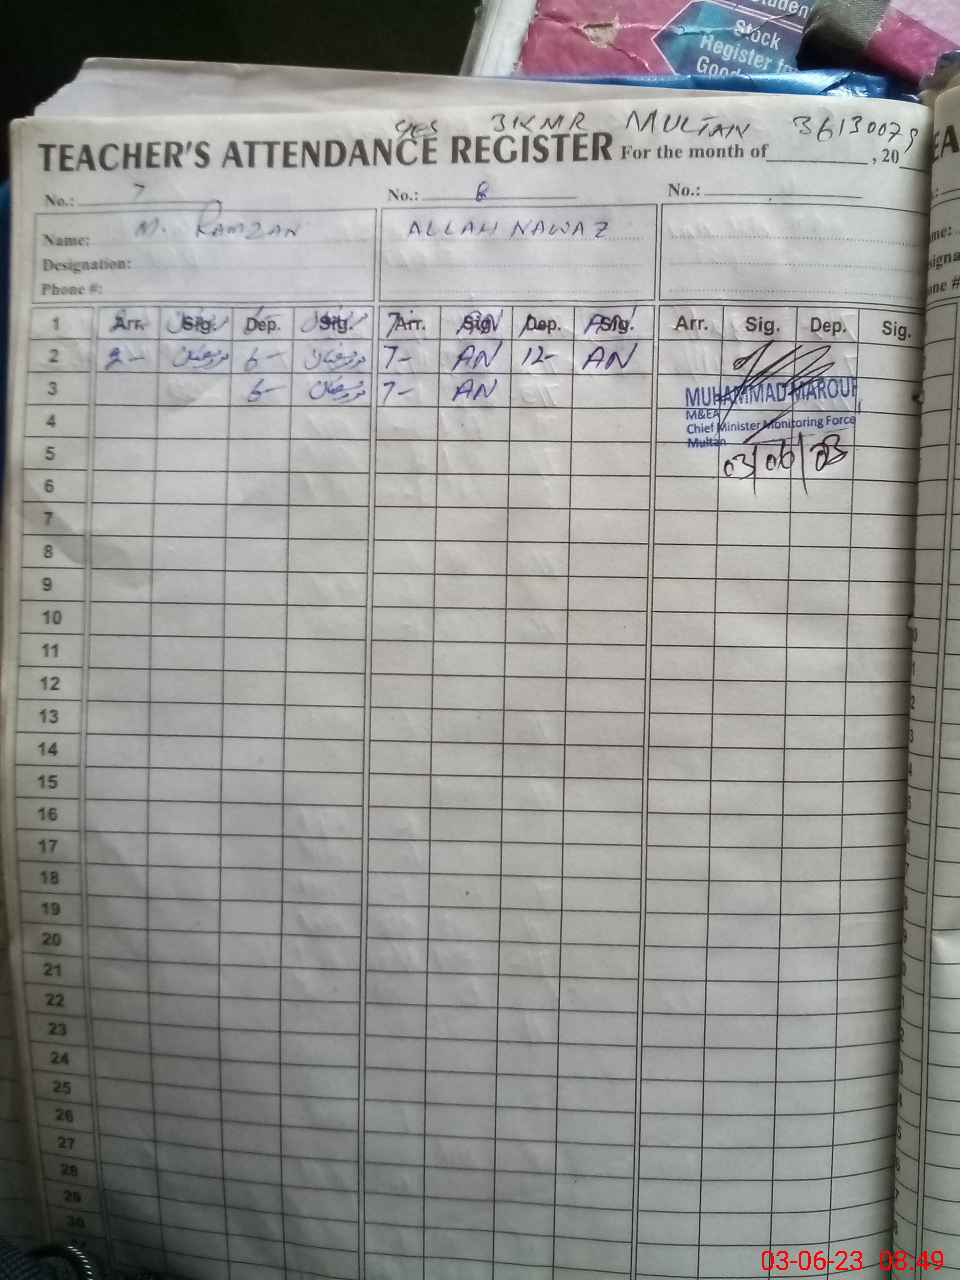 Student
Stock
Register for
Good
GES 3KMR MULTAN 36130079
TEACHER'S ATTENDANCE REGISTER For the month of , 20
No.: 7 No.: 8 No.:
Name: M. RAMZAN ALLAH NAWAZ
Designation:
Phone #:
1 Arr. Sig. Dep. Sig. Arr. Sig. Dep. Sig. Arr. Sig. Dep. Sig.
2 2- رمضان 6- رمضان 7- AN 12- AN
3 6- رمضان 7- AN
MUHAMMAD MAROUF
M&EA
4
Chief Minister Monitoring Force
Multan
5
03/06/23
6
7
8
9
10
11
12
13
14
15
16
17
18
19
20
21
22
23
24
25
26
27
28
29
30
03-06-23 08:49